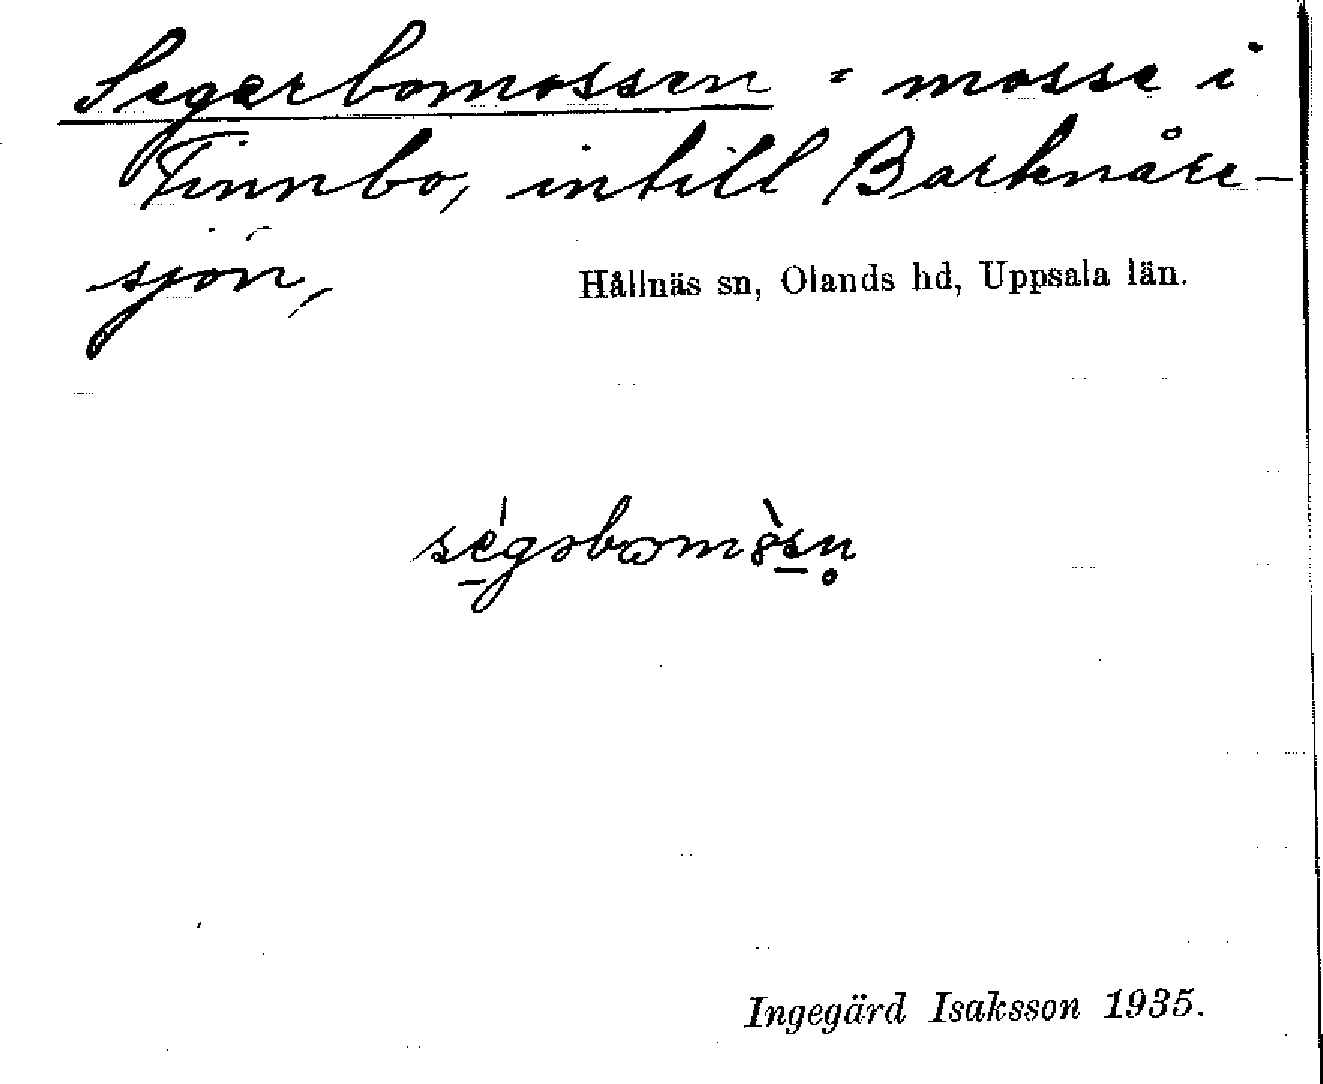 Segerbomossen = mosse i
Finnbo, intill Barknåre-
sjön,
Hållnäs sn, Olands hd, Uppsala län.
sé̱gəbωmòs̱n̥
Ingegärd Isaksson 1935.